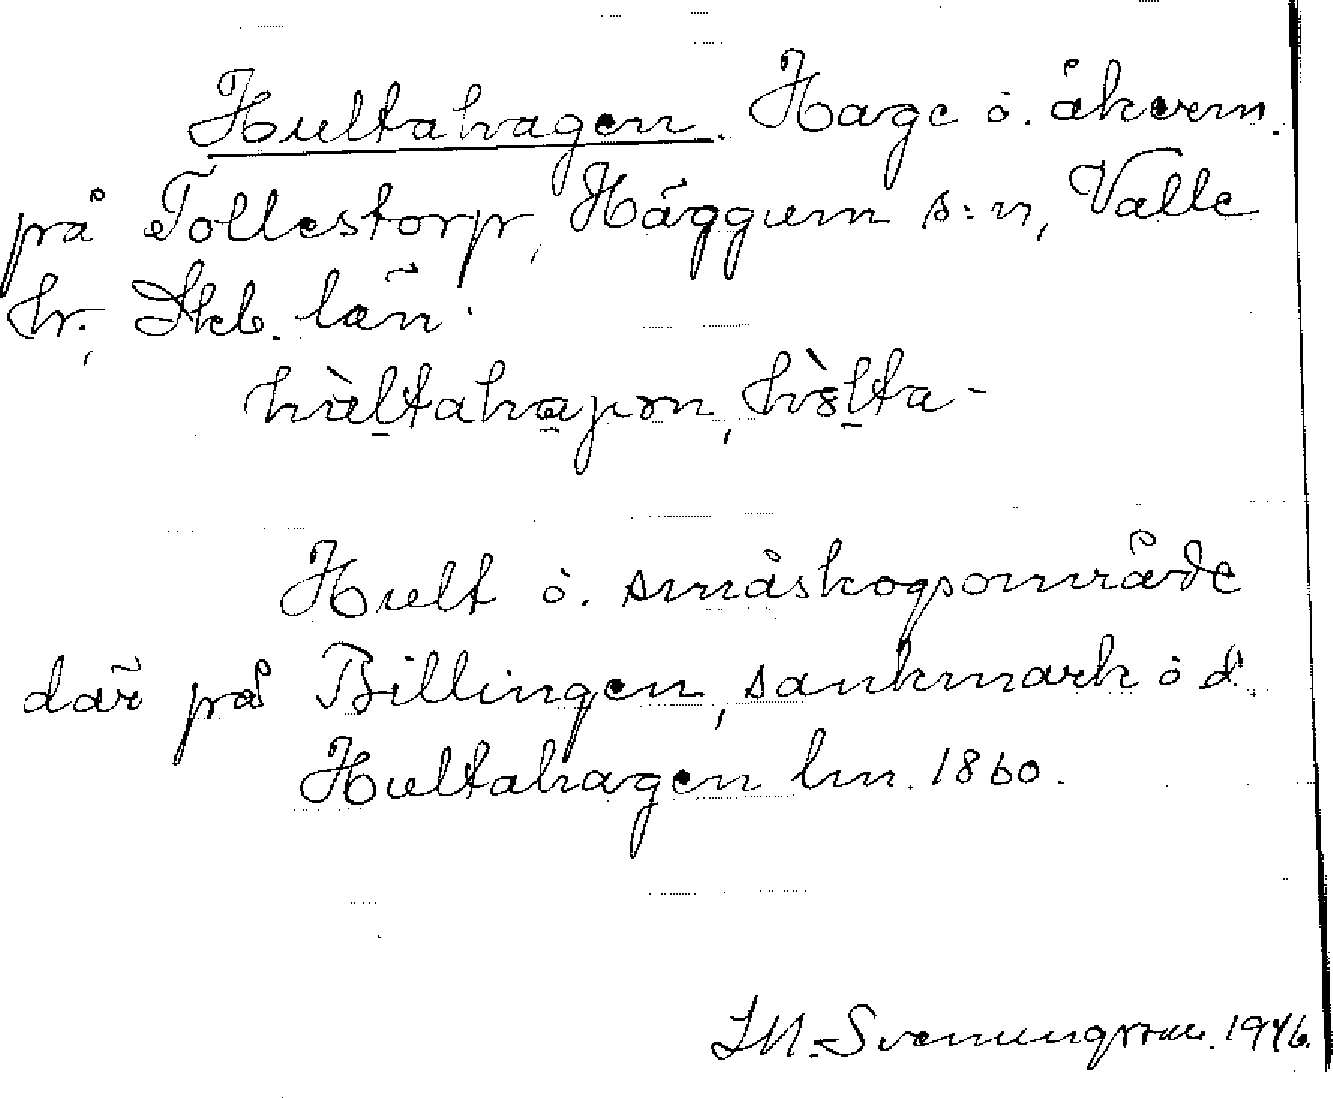 Hultahagen. Hage o. åkerm.
på Tollestorp, Häggum s:n, Valle
hr, Skb. län.
hùltahagen, hòlta-
Hult o. småskogsområde
där på Billingen, sankmark o d.
Hultahagen lm. 1860.
Svenungsson. 1946.